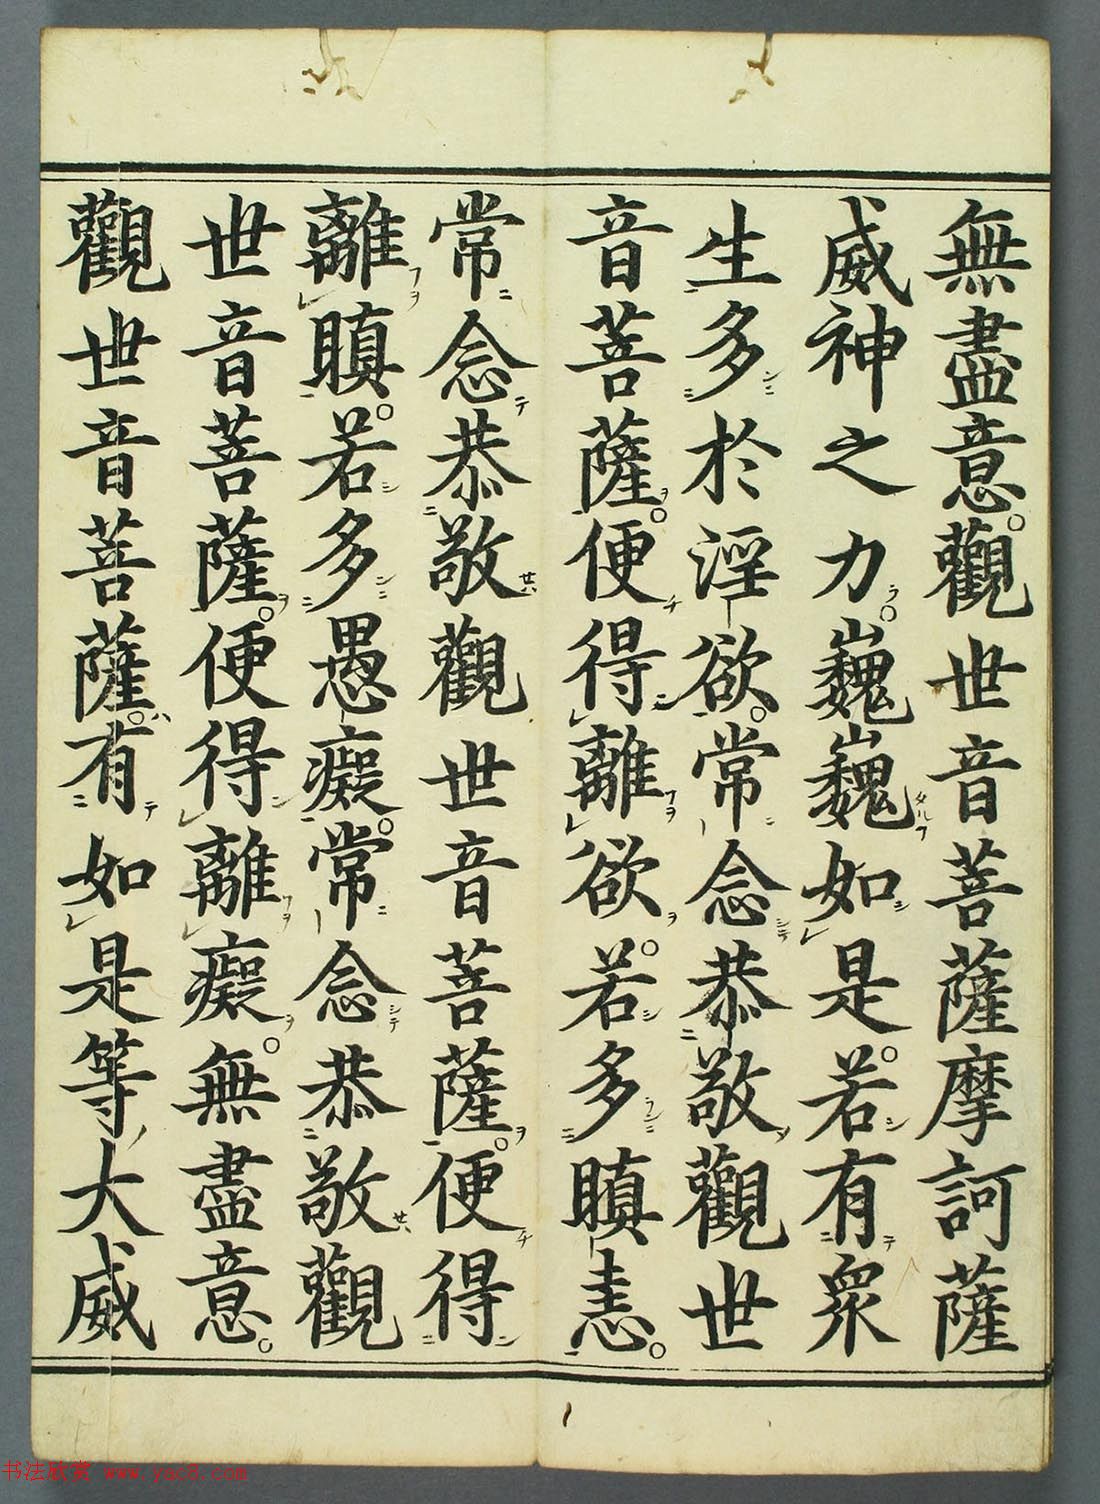 無盡意。觀世音菩薩摩訶薩
威神之力。巍巍如是。若有衆
生多於淫欲。常念恭敬觀世
音菩薩。便得離欲。若多瞋恚。
常念恭敬觀世音菩薩。便得
離瞋。若多愚癡。常念恭敬觀
世音菩薩。便得離癡。無盡意。
觀世音菩薩。有如是等大威
书法欣赏 www.yac8.com